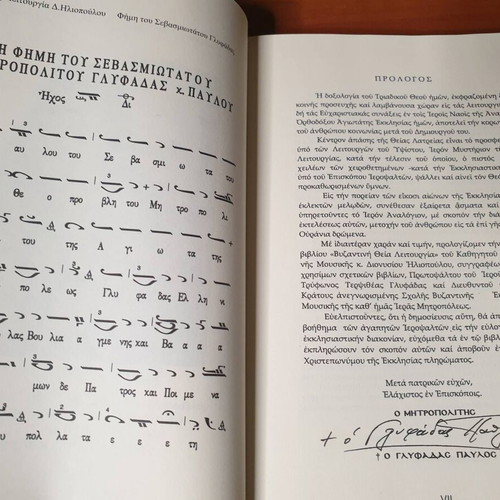 Λειτουργία Δ.Ηλιοπούλου Φήμη του Σεβασμιωτάτου Γλυφάδας
Η ΦΗΜΗ ΤΟΥ ΣΕΒΑΣΜΙΩΤΑΤΟΥ
ΤΡΟΠΟΛΙΤΟΥ ΓΛΥΦΑΔΑΣ κ. ΠΑΥΛΟΥ
Ἦχος Δι
αυ λου του Σε βα σμι ω τα του
Θε ο προ βλη του Μη τρο πο λι
του της Α γι ω τα της
πο λε ως Γλυ φα δας Ελ λη νι
λας Βου λια α γμε νης και Βα α α
μων δε Πα τρος και Ποι με να
πολ λα τα ε ε ε τη
ΠΡΟΛΟΓΟΣ
Ἡ δοξολογία τοῦ Τριαδικοῦ Θεοῦ ἡμῶν, ἐκφραζομένη δ
κοινῆς προσευχῆς καί λαμβάνουσα χώραν εἰς τάς λειτουργ
δή τάς Εὐχαριστιακάς συνάξεις ἐν τοῖς Ἱεροῖς Ναοῖς τῆς Ἁγ
Ὀρθοδόξου Ἁγιωτάτης Ἐκκλησίας ἡμῶν, ἀποτελεῖ τήν κορων
τοῦ ἀνθρώπου κοινωνίας μετά τοῦ Δημιουργοῦ του.
Κέντρον ἁπάσης τῆς Θείας Λατρείας εἶναι τό προσφε
ὑπό τῶν Λειτουργῶν τοῦ Ὑψίστου, Ἱερόν Μυστήριον τη
Λειτουργίας, κατά τήν τέλεσιν τοῦ ὁποίου, ὁ πιστός
χειλέων τῶν χειροθετημένων -κατά τήν Ἐκκλησιαστικ
ὑπό τοῦ Ἐπισκόπου Ἱεροψαλτῶν, ψάλλει καί αἰνεῖ τόν Θε
προκαθωρισμένων ὕμνων.
Εἰς τήν πορείαν τῶν εἴκοσι αἰώνων τῆς Ἐκκλησιασ
ἐκλεκτῶν μελωδῶν, συνέθεσαν ἐξαίρετα ᾄσματα καί
ὑπηρετοῦντες τό Ἱερόν Ἀναλόγιον, μέ σκοπόν τήν διά
ἐκτελέσεως αὐτῶν, μετοχήν τοῦ ἀνθρώπου εἰς τά ἐπί γῆ
Οὐράνια δρώμενα.
Μέ ἰδιαιτέραν χαράν καί τιμήν, προλογίζομεν τήν
βιβλίου «Βυζαντινή Θεία Λειτουργία» τοῦ Καθηγητοῦ
νῆς Μουσικῆς κ. Διονυσίου Ἡλιοπούλου, συγγραφέως
χρησίμων σχετικῶν βιβλίων, Πρωτοψάλτου τοῦ Ἱερ
Τρύφωνος Τερψιθέας Γλυφάδας καί Διευθυντοῦ
Κράτους ἀνεγνωρισμένης Σχολῆς Βυζαντινῆς Ἐ
Μουσικῆς τῆς καθ' ἡμᾶς Ἱερᾶς Μητροπόλεως.
Εὐελπιστοῦντες, ὅτι ἡ δημοσίευσις αὕτη, θά ἀπ
βοήθημα τῶν ἀγαπητῶν Ἱεροψαλτῶν εἰς τήν εὐλογ
ἐκκλησιαστικήν διακονίαν, εὐχόμεθα τά ἐν τῷ βιβλ
ἐκπληρώσουν τόν σκοπόν αὐτῶν καί ἀποβοῦν ἐπ
Χριστεπωνύμου τῆς Ἐκκλησίας πληρώματος.
Μετά πατρικῶν εὐχῶν,
Ἐλάχιστος ἐν Ἐπισκόποις.
Ο ΜΗΤΡΟΠΟΛΙΤΗΣ
+ ὁ Γλυφάδας Παῦλος
† Ο ΓΛΥΦΑΔΑΣ ΠΑΥΛΟΣ
VII